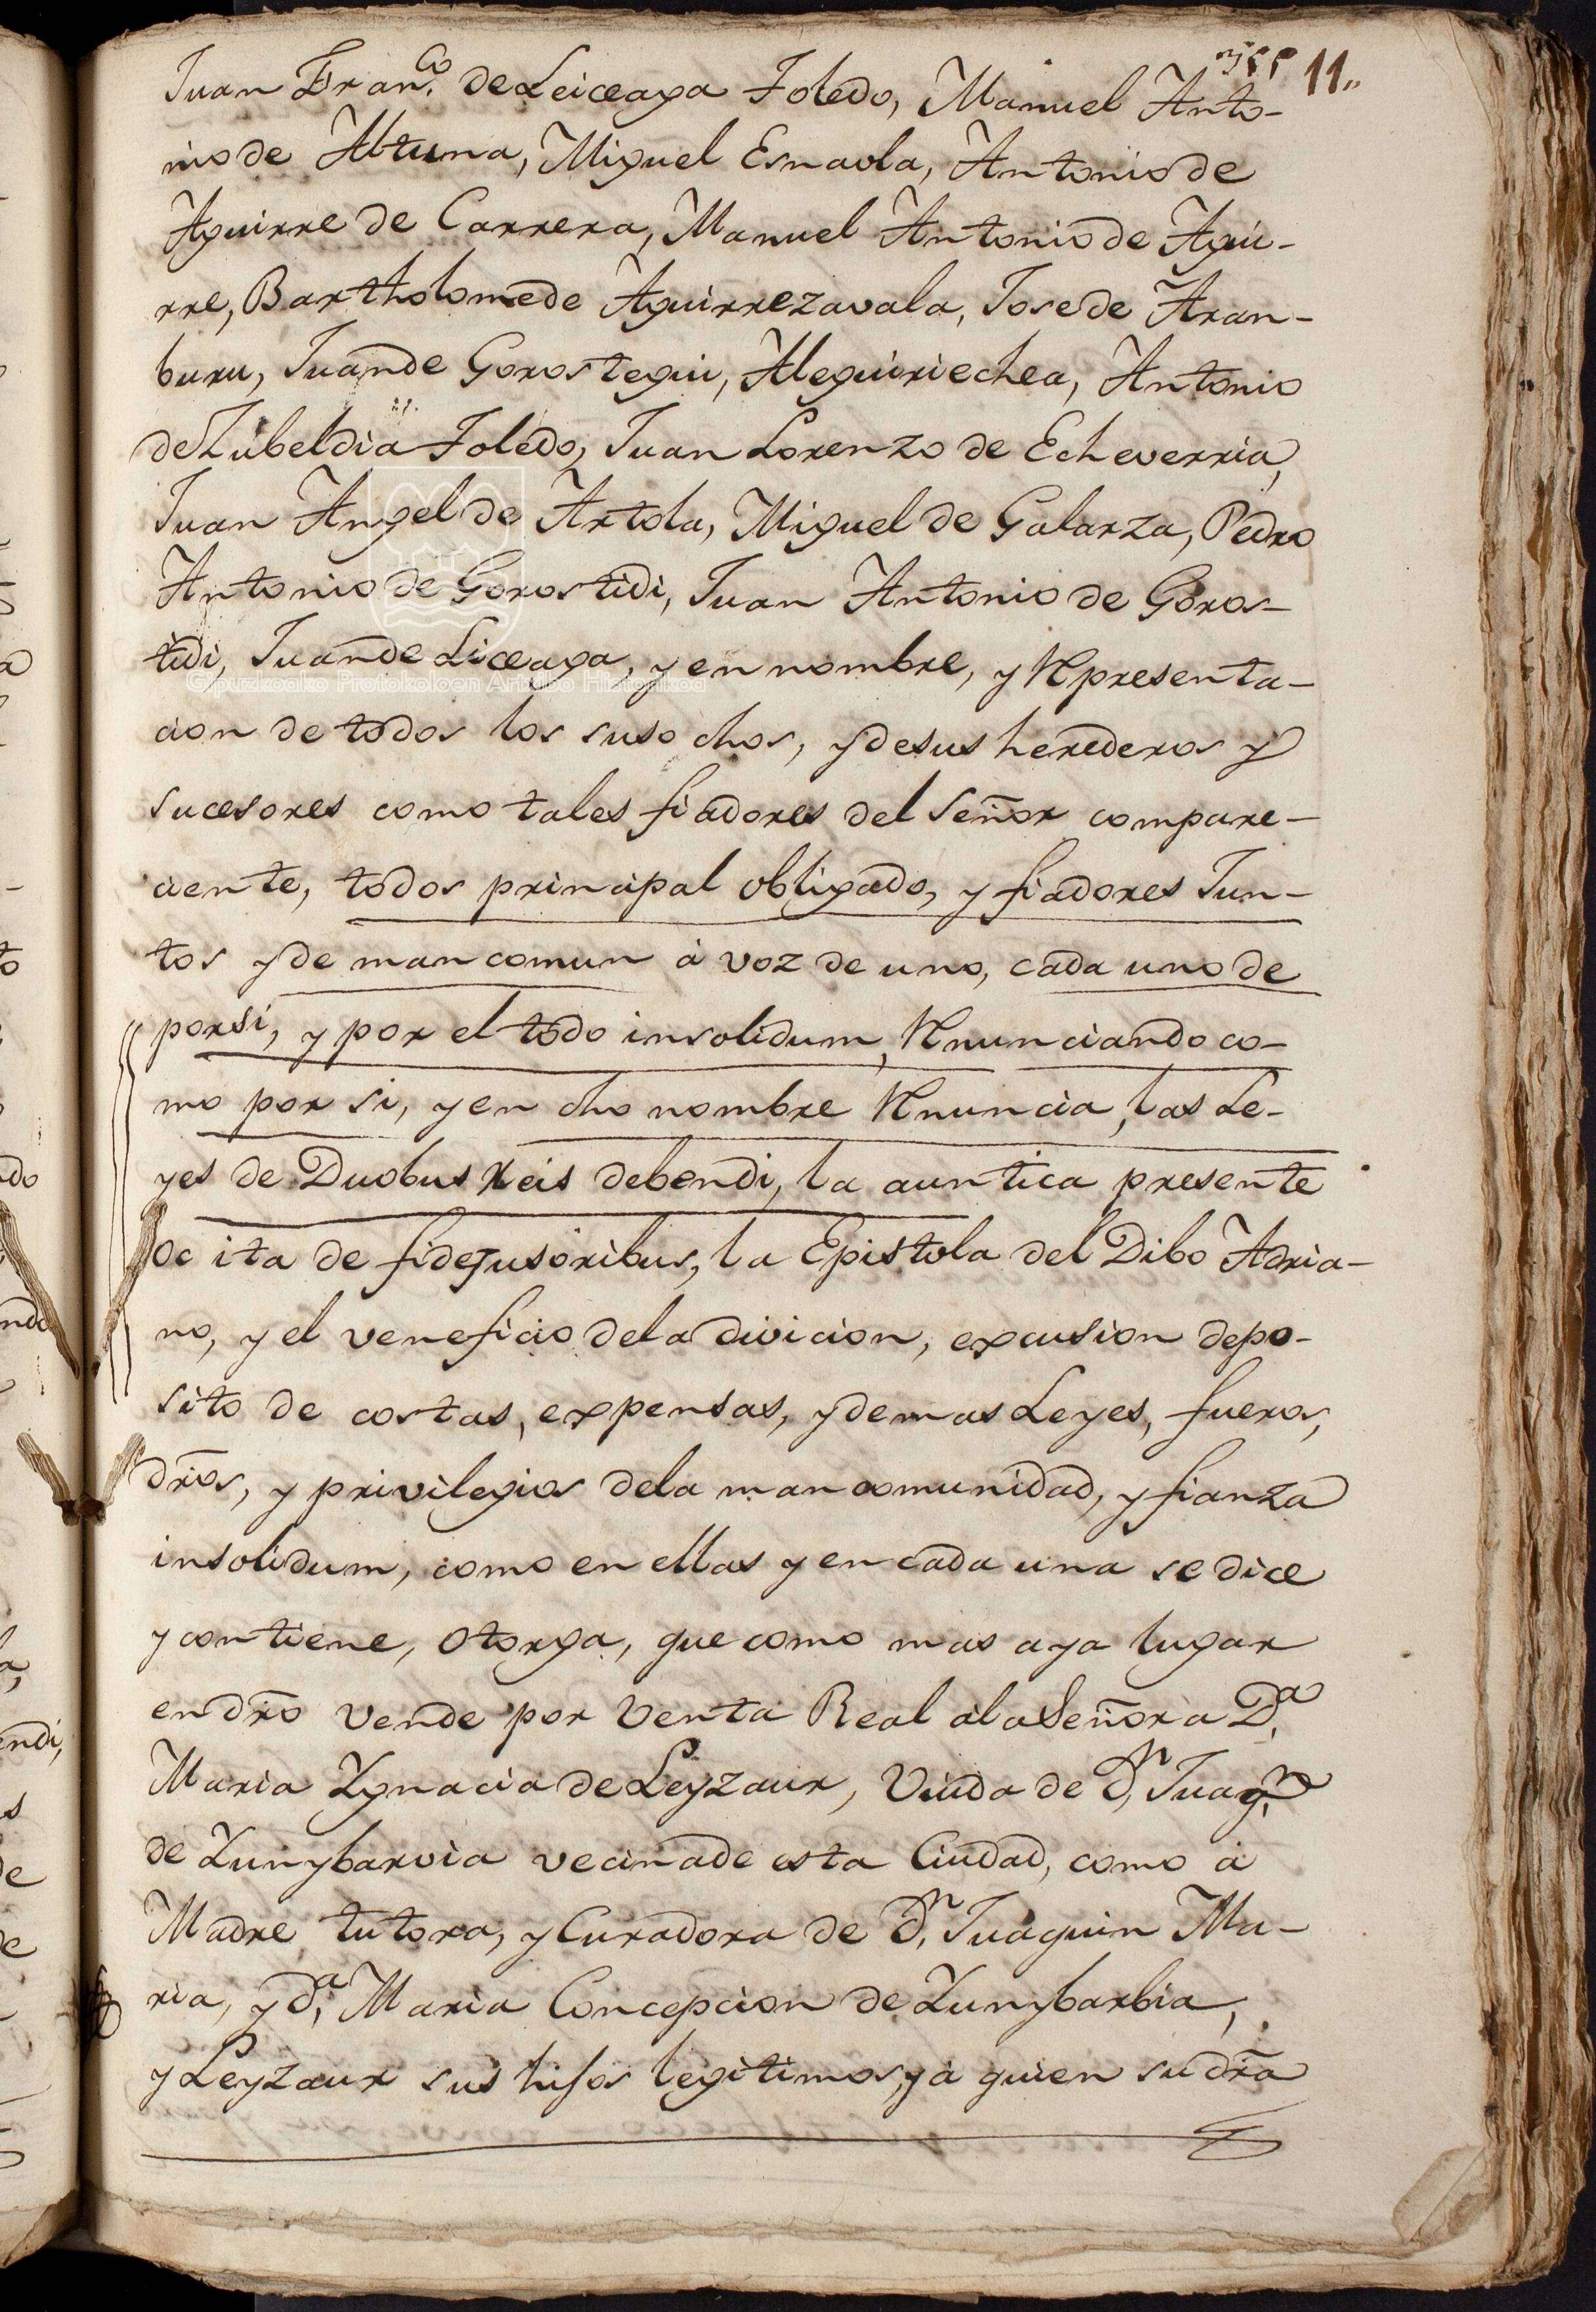 11
Juan Fran.co de Leiceaga Toledo, Manuel Anto-
nio de Altuna, Miguel Esnaola, Antonio de
Aguirre de Carrera, Manuel Antonio de Agui-
rre, Bartholome de Aguirrezavala, Jose de Aran-
buru, Juan de Gorostegui, Aleguiriechea, Antonio
de Zubeldia Toledo, Juan Lorenzo de Echeverria,
Juan Angel de Artola, Miguel de Galarza, Pedro
Antonio de Gorostidi, Juan Antonio de Goros-
tidi, Juan de Liceaga, y en nombre, y Representa-
Gipuzkoako Protokoloen Artxibo Historikoa
cion de todos los suso dhos, y de sus herederos y
sucesores como tales fiadores del Señor compare-
ciente, todos principal obligado, y fiadores Jun-
tos y de mancomun à voz de uno, cada uno de
por si, y por el todo insolidum, Renunciando co-
mo por si, y en dho nombre Renuncia, las Le-
yes de Duobus Reis debendi, la auntica presente
oc ita de fidejusoribus, la Epistola del Dibo Adria-
no, y el veneficio de la divicion, excusion depo-
sito de costas, expensas, y demas Leyes, fueros,
dr̃os, y privilegios dela mancomunidad, y fianza
insolidum, como en ellas y en cada una se dice
y contiene, otorga, que como mas aya lugar
en dr̃o vende por Venta Real à la Señora D.a
Maria Ygnacia de Leyzaur, Viuda de D.n Juaq.n
de Zunybarvia vecina de esta Ciudad, como à
Madre tutora, y Curadora de D.n Juaquin Ma-
ria, y d.a Maria Concepcion de Zunybarbia,
y Leyzaur sus hijos legitimos, y à quien su dr̃a